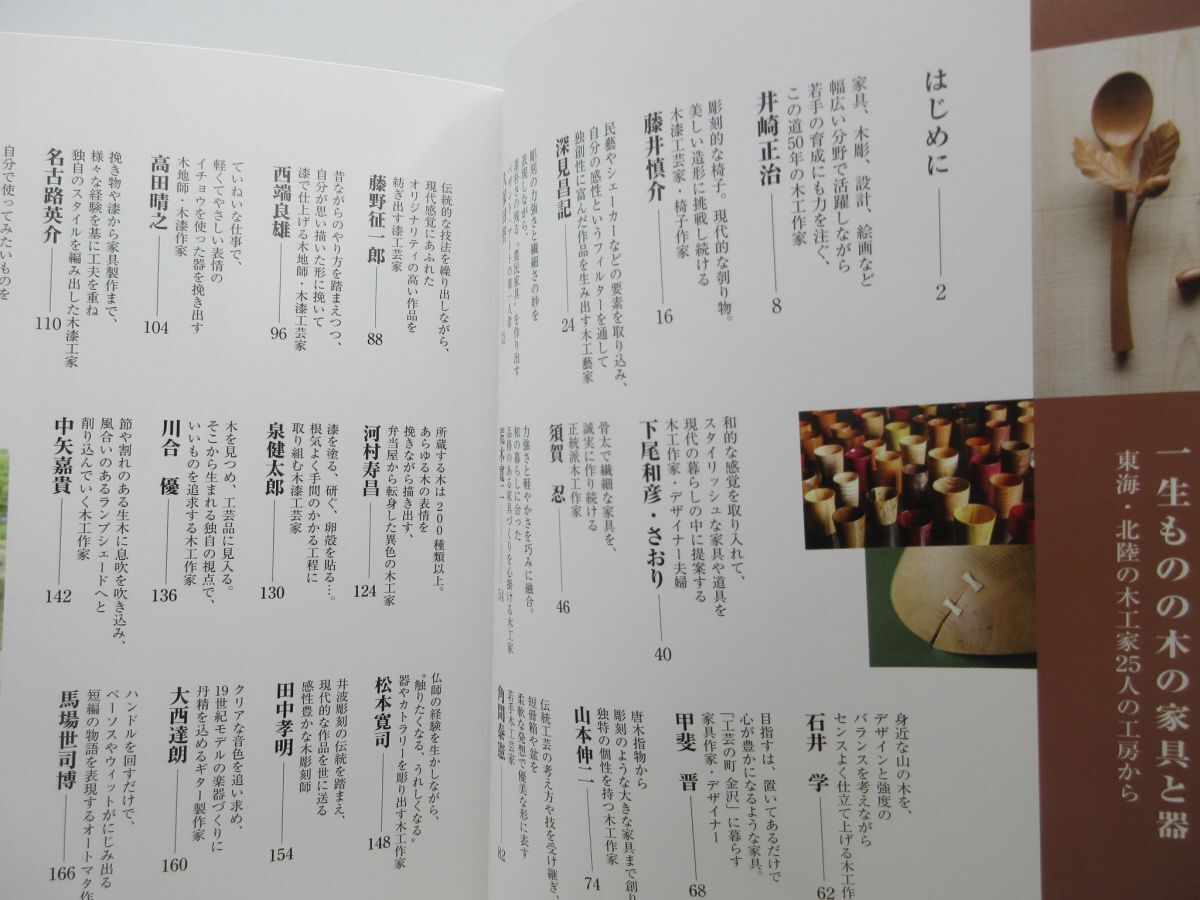 一生ものの木の家具と器
東海・北陸の木工家25人の工房から
はじめに
2
家具、木彫、設計、絵画など
幅広い分野で活躍しながら
若手の育成にも力を注ぐ、
この道50年の木工作家
井崎正治
8
彫刻的な椅子。現代的な刳り物。
美しい造形に挑戦し続ける
木漆工芸家・椅子作家
藤井慎介
16
民藝やシェーカーなどの要素を取り込み、
自分の感性というフィルターを通して
独創性に富んだ作品を生み出す木工藝家
深見昌記
24
彫刻の力強さと繊細さの妙を
表現しながら、
を作り出す
和的な感覚を取り入れて、
スタイリッシュな家具や道具を
現代の暮らしの中に提案する
木工作家・デザイナー夫婦
下尾和彦・さおり
40
骨太で繊細な家具を、
誠実に作り続ける
正統派木工作家
須賀 忍
46
力強さと軽やかさを巧みに融合。
和の暮らしに合った
品格のある家具づくりを心掛ける木工家
54
身近な山の木を、
デザインと強度の
バランスを考えながら
センスよく仕立て上げる木工作
石井 学
62
目指すは、置いてあるだけで
心が豊かになるような家具。
「工芸の町 金沢」に暮らす
家具作家・デザイナー
甲斐 晋
68
唐木指物から
彫刻のような大きな家具まで創り
独特の個性を持つ木工作家
山本伸二
74
伝統工芸の考え方や技を受け継ぎ、
短冊箱や盆を
柔軟な発想で優美な形に表す
若手木工芸家
角間泰憲
82
伝統的な技法を繰り出しながら、
現代感覚にあふれた
オリジナリティの高い作品を
紡ぎ出す漆工芸家
藤野征一郎
88
昔ながらのやり方を踏まえつつ、
自分が思い描いた形に挽いて
漆で仕上げる木地師・木漆工芸家
西端良雄
96
ていねいな仕事で、
軽くてやさしい表情の
イチョウを使った器を挽き出す
木地師・木漆作家
高田晴之
104
挽き物や漆から家具製作まで、
様々な経験を基に工夫を重ね
独自のスタイルを編み出した木漆工家
名古路英介
110
自分で使ってみたいものを
所蔵する木は200種類以上。
あらゆる木の表情を
挽きながら描き出す、
弁当屋から転身した異色の木工家
河村寿昌
124
漆を塗る、研ぐ、卵殻を貼る…。
根気よく手間のかかる工程に
取り組む木漆工芸家
泉健太郎
130
木を見つめ、工芸品に見入る。
そこから生まれる独自の視点で、
いいものを追求する木工作家
川合 優
136
節や割れのある生木に息吹を吹き込み、
風合いのあるランプシェードへと
削り込んでいく木工作家
中矢嘉貴
142
仏師の経験を生かしながら、
“触りたくなる、うれしくなる”
器やカトラリーを彫り出す木工作家
松本寛司
148
井波彫刻の伝統を踏まえ、
現代的な作品を世に送る
感性豊かな木彫刻師
田中孝明
154
クリアな音色を追い求め、
19世紀モデルの楽器づくりに
丹精を込めるギター製作家
大西達朗
160
ハンドルを回すだけで、
ペーソスやウィットがにじみ出る
短編の物語を表現するオートマタ作
馬場世司博
166